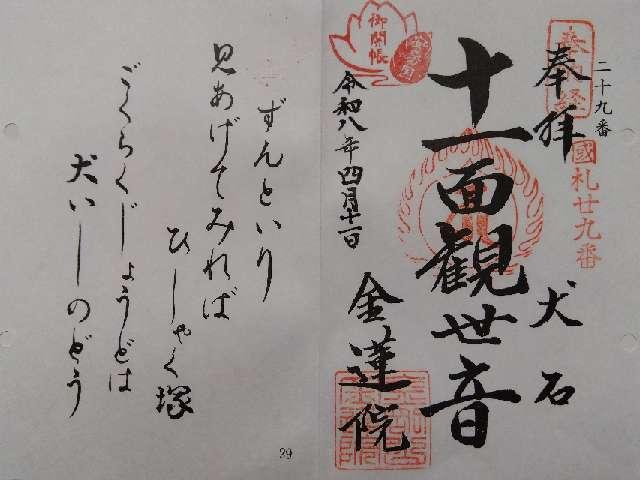 二十九番
奉拝
國札廿九番
犬石
十一面觀世音
金蓮院
御開帳
令和八年四月十一日
ずんといり
見あげてみれば
ひしゃく塚
ごくらくじょうどは
犬いしのどう
29